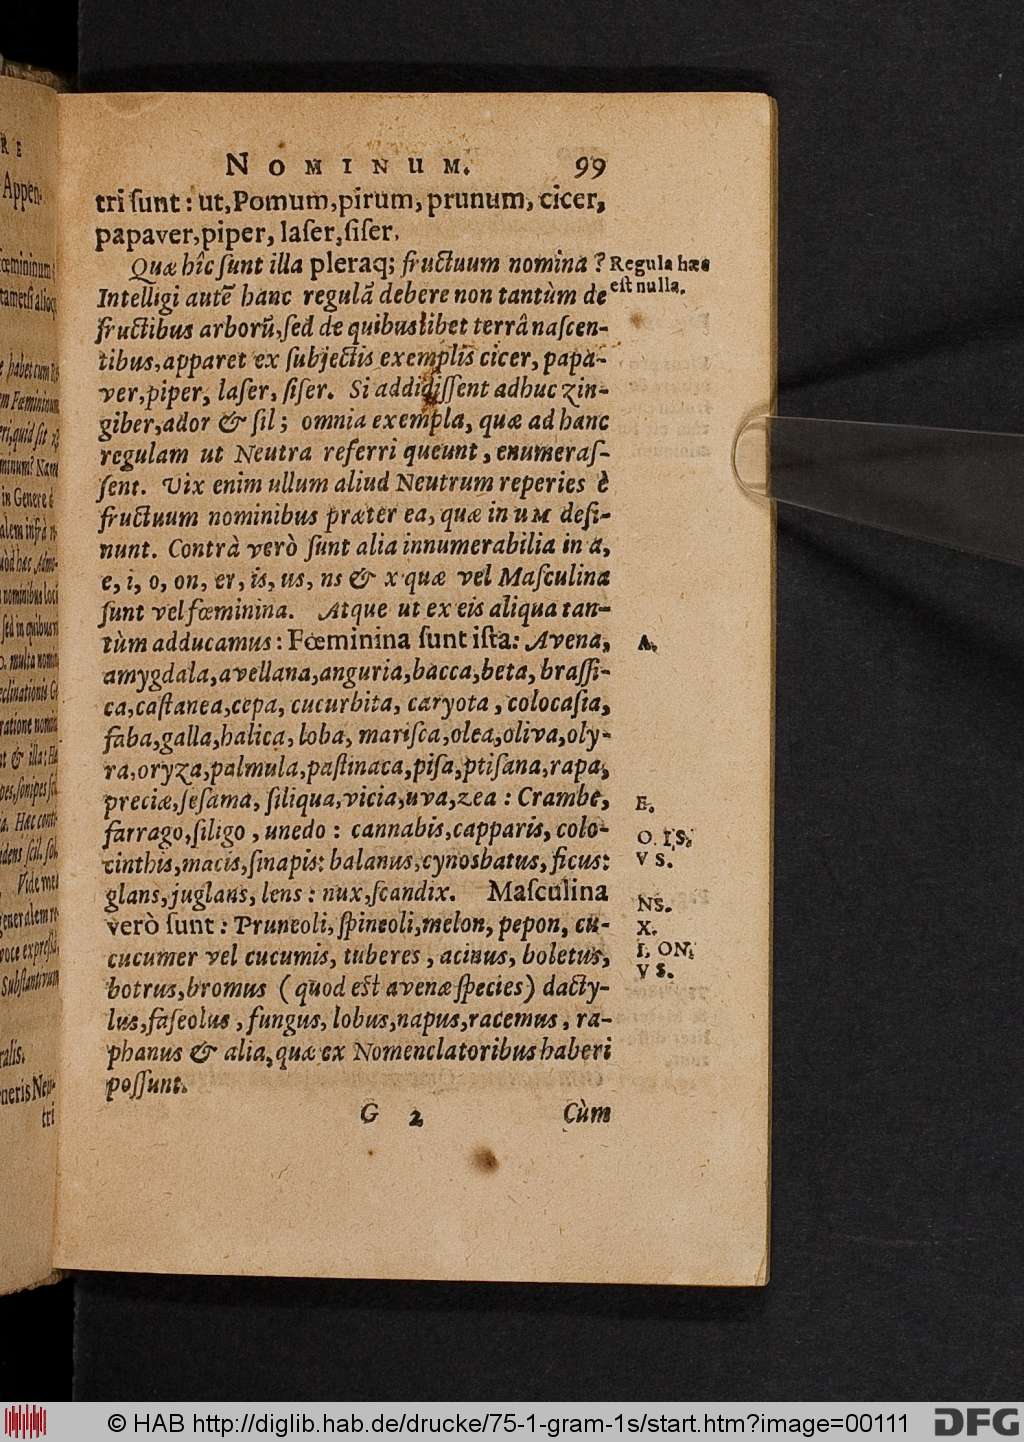 NOMINUM. 99
tri ſunt: ut, Pomum, pirum, prunum, cicer,
papaver, piper, laſer, ſiſer.
Quæ hîc ſunt illa pleraq; fructuum nomina?
Regula hæc
eſt nulla.
Intelligi autē hanc regulā debere non tantùm de
fructibus arborū, ſed de quibuslibet terrâ naſcen-
tibus, apparet ex ſubjectis exemplis cicer, papa-
ver, piper, laſer, ſiſer. Si addidiſſent adhuc zin-
giber, ador & ſil; omnia exempla, quæ ad hanc
regulam ut Neutra referri queunt, enumeraſ-
ſent. Vix enim ullum aliud Neutrum reperies è
fructuum nominibus præter ea, quæ in UM deſi-
nunt. Contrà verò ſunt alia innumerabilia in a,
e, i, o, on, er, is, us, ns & x quæ vel Maſculina
ſunt vel fœminina. Atque ut ex eis aliqua tan-
tùm adducamus: Fœminina ſunt iſta: Avena,
A.
amygdala, avellana, anguria, bacca, beta, braſſi-
ca, caſtanea, cepa, cucurbita, caryota, colocaſia,
faba, galla, halica, loba, mariſca, olea, oliva, oly-
ra, oryza, palmula, paſtinaca, piſa, ptiſana, rapa,
preciæ, ſeſama, ſiliqua, vicia, uva, zea: Crambe,
E.
farrago, ſiligo, unedo: cannabis, capparis, colo-
O. IS.
cinthis, macis, ſinapis: balanus, cynosbatus, ficus:
VS.
glans, juglans, lens: nux, ſcandix. Maſculina
NS.
verò ſunt: Pruneoli, ſpineoli, melon, pepon, cu-
X.
cucumer vel cucumis, tuberes, acinus, boletus,
I. ON.
VS.
botrus, bromus (quod eſt avenæ ſpecies) dacty-
lus, faſeolus, fungus, lobus, napus, racemus, ra-
phanus & alia, quæ ex Nomenclatoribus haberi
poſſunt.
G 2 Cùm
© HAB http://diglib.hab.de/drucke/75-1-gram-1s/start.htm?image=00111
DFG